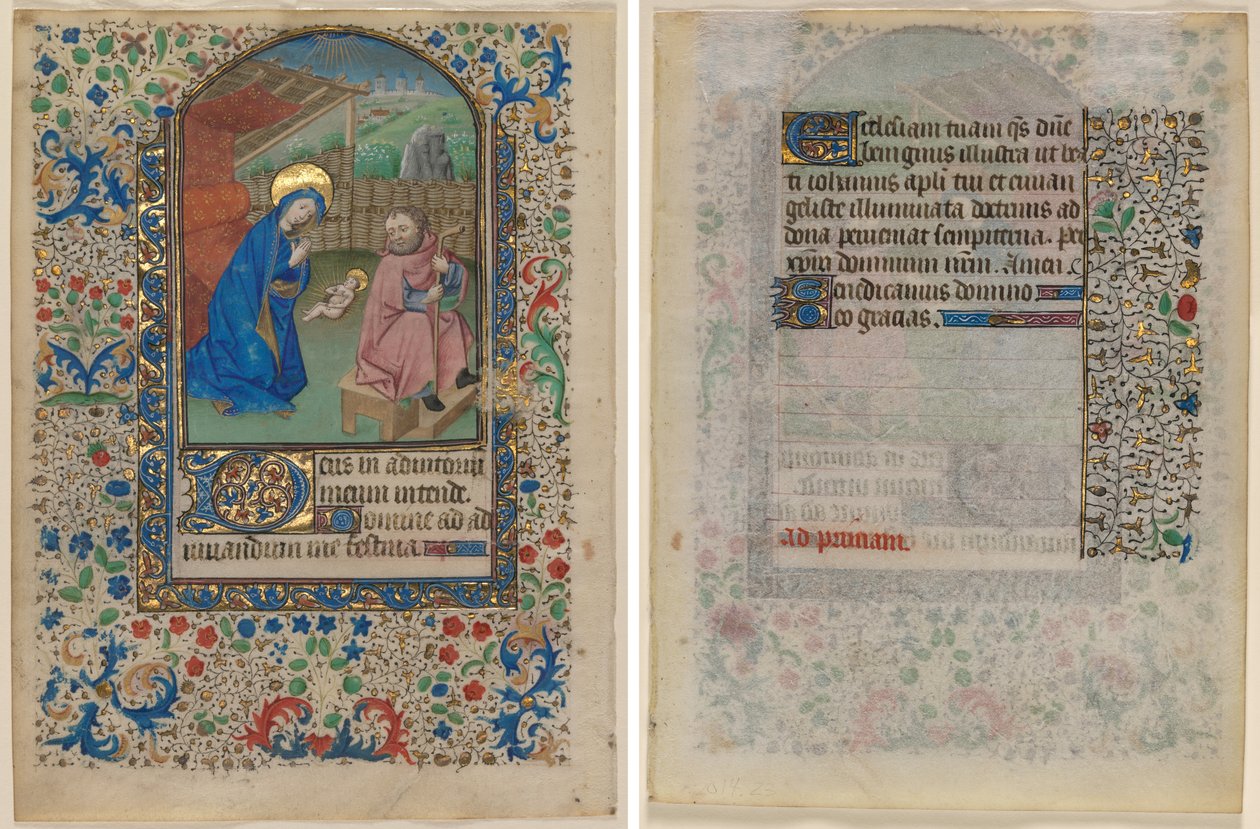 eus in adiutoriu
meum intende.
Domine ad ad
iuuandum me festina.
Ecclesiam tuam qs dne
benignus illustra ut bea
ti iohannis apli tui et euuan
geliste illuminata doctrinis ad
dona perueniat sempiterna. Per
xpm dominum nrm. Amen.
Benedicamus domino
Deo gracias.
ad primam